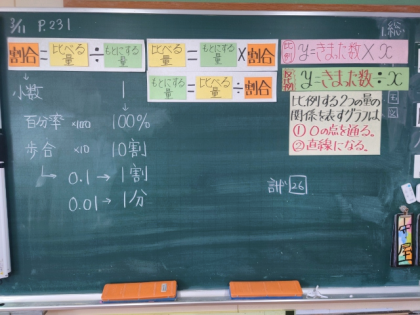 3/11 P.231
総
割合=比べる量÷もとにする量
比べる量=もとにする量×割合
もとにする量=比べる量÷割合
比例 y=きまった数×x
反比例 y=きまった数÷x
比例する2つの量の
関係を表すグラフは、
①0の点を通る。
②直線になる。
小数 1
百分率 ×100 100%
歩合 ×10 10割
0.1→1割
0.01→1分
計 26